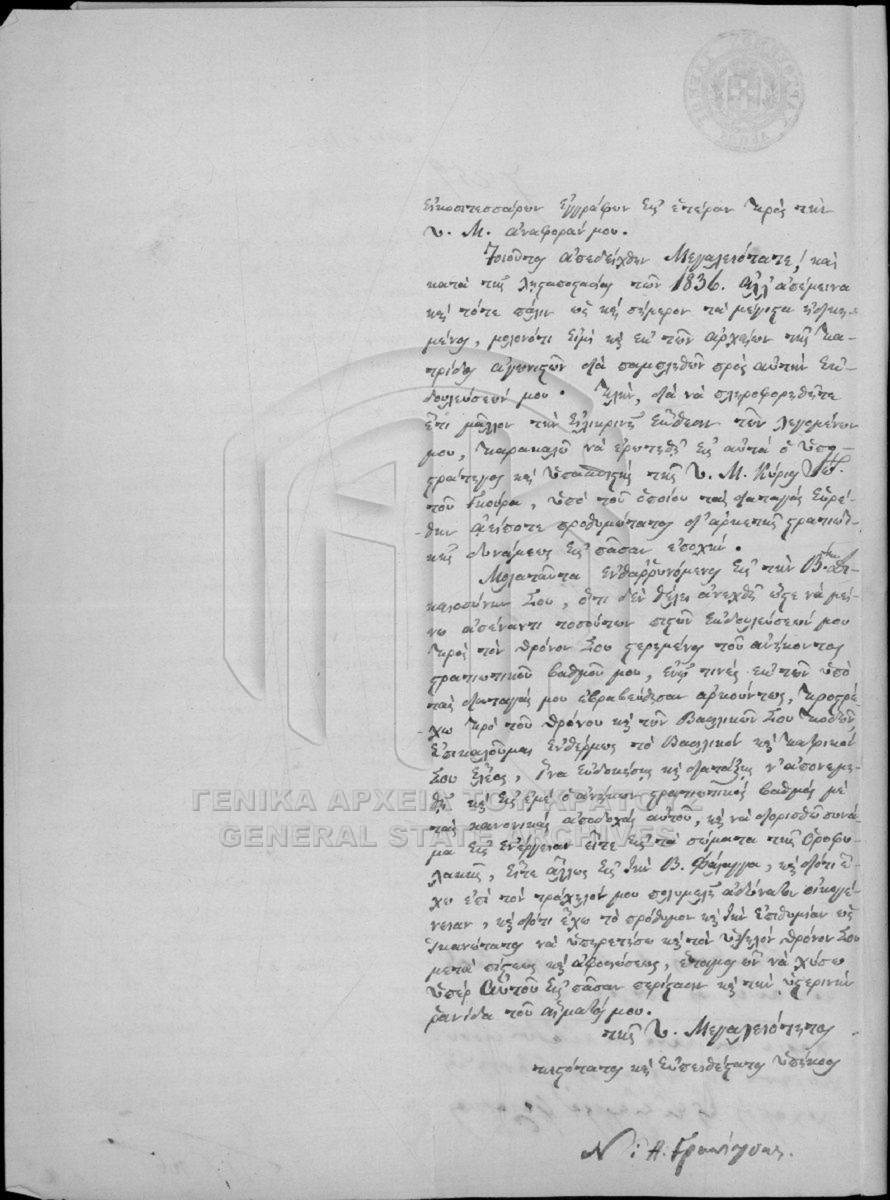 εἰκοσιτεσσάρων ἐγγράφων εἰς ἑτέραν πρὸς τὴν
Υ. Μ. ἀναφοράν μου.
Τοιοῦτος ἀπεδείχθην Μεγαλειότατε! καὶ
κατὰ τῆς ληστοαποστασίας τῶν 1836. ἀλλ' ἀπέμεινα
καὶ τότε πάλιν ὡς καὶ σήμερον τὰ μέγιστα ἠδικη-
μένος, μολονότι εἰμὶ καὶ ἐκ τῶν ἀρχαίων τῆς πα-
τρίδος ἀγωνιστῶν διὰ παμπληθῶν πρὸς αὐτὴν ἐκ-
δουλεύσεών μου. Πλὴν, διὰ νὰ πληροφορηθῆτε
ἔτι μᾶλλον τὴν εἰλικρινῆ ἔκθεσιν τῶν λεγομένων
μου, παρακαλῶ νὰ ἐρωτηθῇ εἰς αὐτὰ ὁ ὑπο-
στράτηγος καὶ ὑπασπιστὴς τῆς Υ. Μ. Κύριος
τοῦ Γκούρα, ὑπὸ τοῦ ὁποίου τὰς διαταγὰς εὑρέ-
θην ἀείποτε προθυμώτατος μ' ἀρκετῆς στρατιωτι-
κῆς δυνάμεως εἰς πᾶσαν ἐποχήν.
Μολαταῦτα ἐνθαρρυνόμενος εἰς τὴν Β. δι-
καιοσύνην Σου, ὅτι δὲν θέλει ἀνεχθῇ ὥστε νὰ μεί-
νω ἀπέναντι τοσούτων πιστῶν ἐκδουλεύσεών μου
πρὸς τὸν θρόνον Σου στερημένος τοῦ ἀνήκοντος
στρατιωτικοῦ βαθμοῦ μου, ἐνῷ τινὲς ἐκ τῶν ὑπὸ
τὰς διαταγάς μου ἐβραβεύθησαν ἀρκούντως, προστρέ-
χω πρὸ τοῦ θρόνου καὶ τῶν Βασιλικῶν Σου ποδῶν,
ἐπικαλοῦμαι ἐνθέρμως τὸ Βασιλικὸν καὶ πατρικόν
Σου ἔλεος, ἵνα εὐδοκήσῃς καὶ διατάξῃς ν' ἀπονεμη-
θῇ καὶ εἰς ἐμὲ ὁ ἀνήκων στρατιωτικὸς βαθμὸς μὲ
τὰς κανονικὰς ἀποδοχὰς αὐτοῦ, καὶ νὰ διορισθῶ συνά-
μα εἰς ἐνέργειαν εἴτε εἰς τὰ σώματα τῆς Ὁροφυ-
λακῆς, εἴτε ἄλλως εἰς τὴν Β. Φάλαγγα, καὶ διότι ἔ-
χω ἐπὶ τὸν τράχηλόν μου πολυμελῆ ἀδύνατον οἰκογέ-
νειαν, καὶ διότι ἔχω τὸ πρόθυμον καὶ τὴν ἐπιθυμίαν ὡς
ἱκανώτατος νὰ ὑπηρετήσω καὶ τὸν ὑψηλὸν θρόνον Σου
μετὰ πίστεως καὶ ἀφοσιώσεως, ἕτοιμος ὢν νὰ χύσω
ὑπὲρ Αὐτοῦ εἰς πᾶσαν περίστασιν καὶ τὴν ὑστερινὴν
ῥανίδα τοῦ αἵματός μου.
τῆς Υ. Μεγαλειότητος
πιστότατος καὶ εὐπειθέστατος ὑπήκοος
Ν: Α:
ΓΕΝΙΚΑ ΑΡΧΕΙΑ ΤΟΥ ΚΡΑΤΟΥΣ
GENERAL STATE ARCHIVES